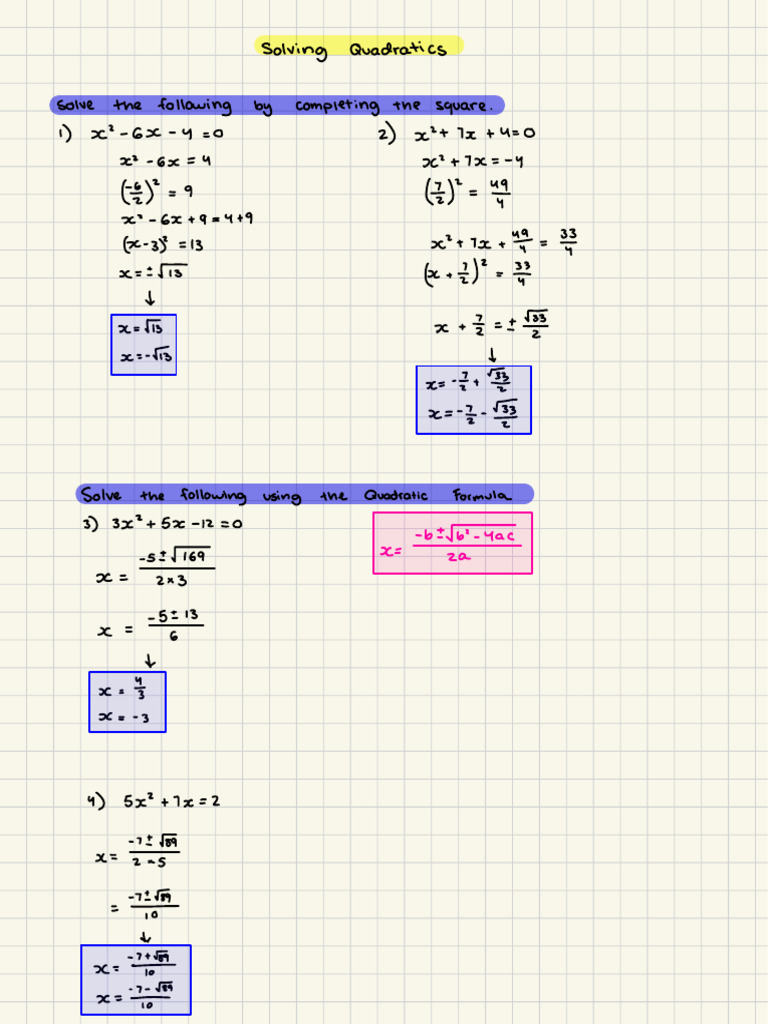 Solving Quadratics
Solve the following by completing the square.
1) x² - 6x - 4 = 0
x² - 6x = 4
(-6/2)² = 9
x² - 6x + 9 = 4 + 9
(x - 3)² = 13
x = ±√13
↓
x = √13
x = -√13
2) x² + 7x + 4 = 0
x² + 7x = -4
(7/2)² = 49/4
x² + 7x + 49/4 = 33/4
(x + 7/2)² = 33/4
x + 7/2 = ± √33/2
↓
x = -7/2 + √33/2
x = -7/2 - √33/2
Solve the following using the Quadratic Formula
x = (-b ± √(b² - 4ac))/2a
3) 3x² + 5x - 12 = 0
x = (-5 ± √169)/(2 × 3)
x = (-5 ± 13)/6
↓
x = 4/3
x = -3
4) 5x² + 7x = 2
x = (-7 ± √89)/(2 - 5)
= (-7 ± √89)/10
↓
x = (-7 + √89)/10
x = (-7 - √89)/10